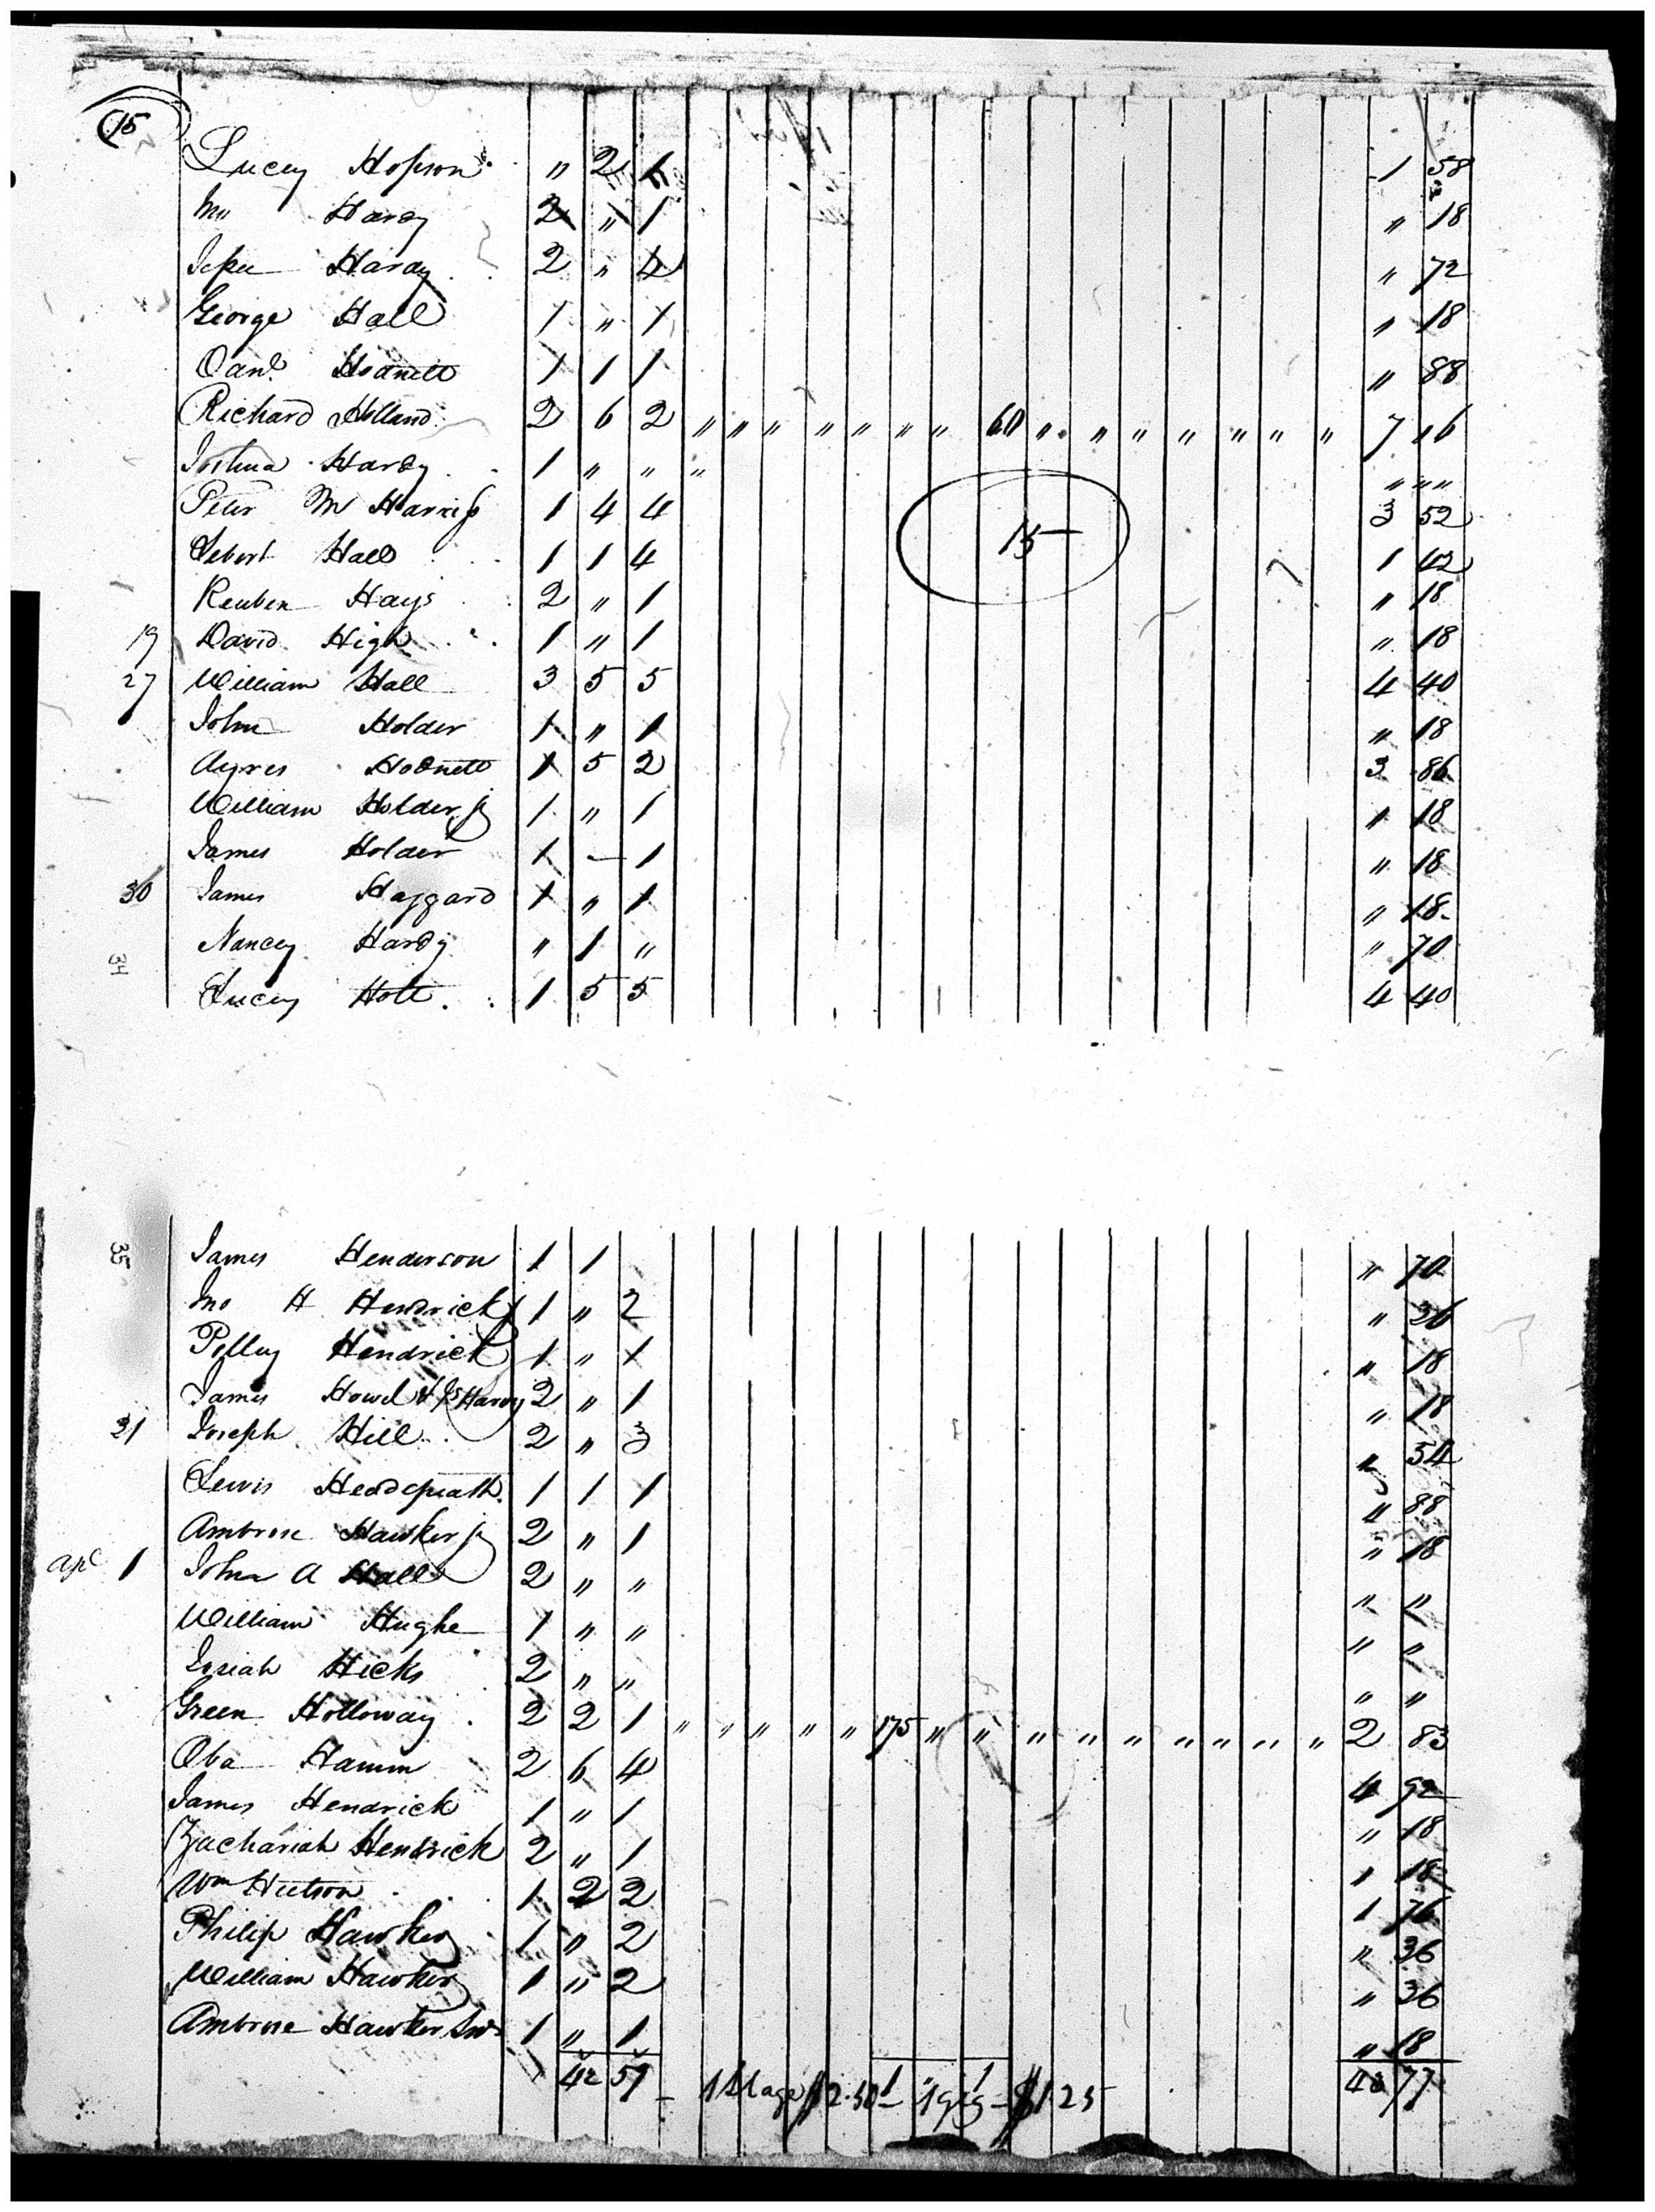 15
Lucey Hopson " 2 1 1 58
Jno Hardy 2 " 1 " 18
Hardy 2 " 4 " 72
George Hall 1 " 1 " 18
Danl. Hodnett 1 1 1 " 88
Richard Holland 2 6 2 " " " " " " " 60 " " " " " " " 7 " 6
Joshua Hardy 1 " " " " " "
Peter M Harris 1 4 4 3 52
15
Hall 1 1 4 1 42
Reuben Hays 2 " 1 " 18
19 David High 1 " 1 " 18
27 William Hall 3 5 5 4 40
John Holder 1 " 1 " 18
Ayres Hodnett 1 5 2 3 86
William Holder jr 1 " 1 " 18
James Holder 1 — 1 " 18
30 James Haggard 1 " 1 " 18
Nancey Hardy " 1 " " 70
34
Lucey Holt 1 5 5 4 40
35
James Henderson 1 1 " 70
Jno H Hendrick 1 " 2 " 36
Polley Hendrick 1 " 1 " 18
James Howl & Js Hardy 2 " 1 " 18
31 Joseph Hill 2 " 3 " 54
Lewis Headspeath 1 1 1 " 88
Ambrose Hawker jr 2 " 1 " 18
Apl 1 John A Hall 2 " " " "
William Hughe 1 " " " "
Josiah Hicks 2 " " " "
Green Holloway 2 2 1 " " " " " 175 " " " " " " " " " 2 83
Oba Hamm 2 6 4 4 92
James Hendrick 1 " 1 " 18
Zachariah Hendrick 2 " 1 " 18
Wm Hutson 1 2 2 1 76
Philip Hawker 1 " 2 " 36
William Hawker 1 " 2 " 36
Ambrose Hawker Snr 1 " 1 " 18
42 59 1 1 40 77
1 Stage $2.50 — 1 gig — $1 25